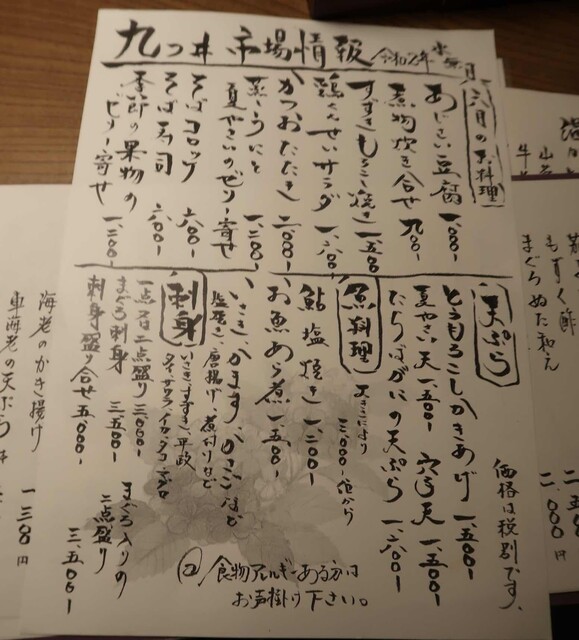 九つ井 市場情報 令和六年 水無月
六月のお料理
あじさい豆腐 一、〇〇〇-
煮物炊き合せ 九〇〇-
すずきもろこし焼き 一、五〇〇-
鶏くんせいサラダ 一、六〇〇-
かつおたたき 二、〇〇〇-
蒸しうにと
夏やさいのゼリー寄せ 一、三〇〇-
そばコロッケ 六〇〇-
そば寿司 六〇〇-
季節の果物の
ゼリー寄せ 一、三〇〇-
天ぷら
とうもろこしかきあげ 一、五〇〇-
夏やさい天 一、五〇〇- 穴子天 一、五〇〇-
たらばがにの天ぷら 一、六〇〇-
魚料理
大きさにより
三、〇〇〇-位から
鮎塩焼き 一、二〇〇-
お魚あら煮 一、五〇〇-
いさき、かます、かさごなど
塩焼き、唐揚げ、煮付けなど
刺身
いさき、すずき、平政
一点又は二点盛り 三、〇〇〇-
まぐろ刺身 三、五〇〇-
刺身盛り合せ 五、〇〇〇-
まぐろ入りの
二点盛り 三、五〇〇-
価格は税別です。
食物アレルギーある方は
お声掛け下さい。
もずく酢
まぐろぬた和え
海老のかき揚げ 一三〇〇円
車海老の天ぷら